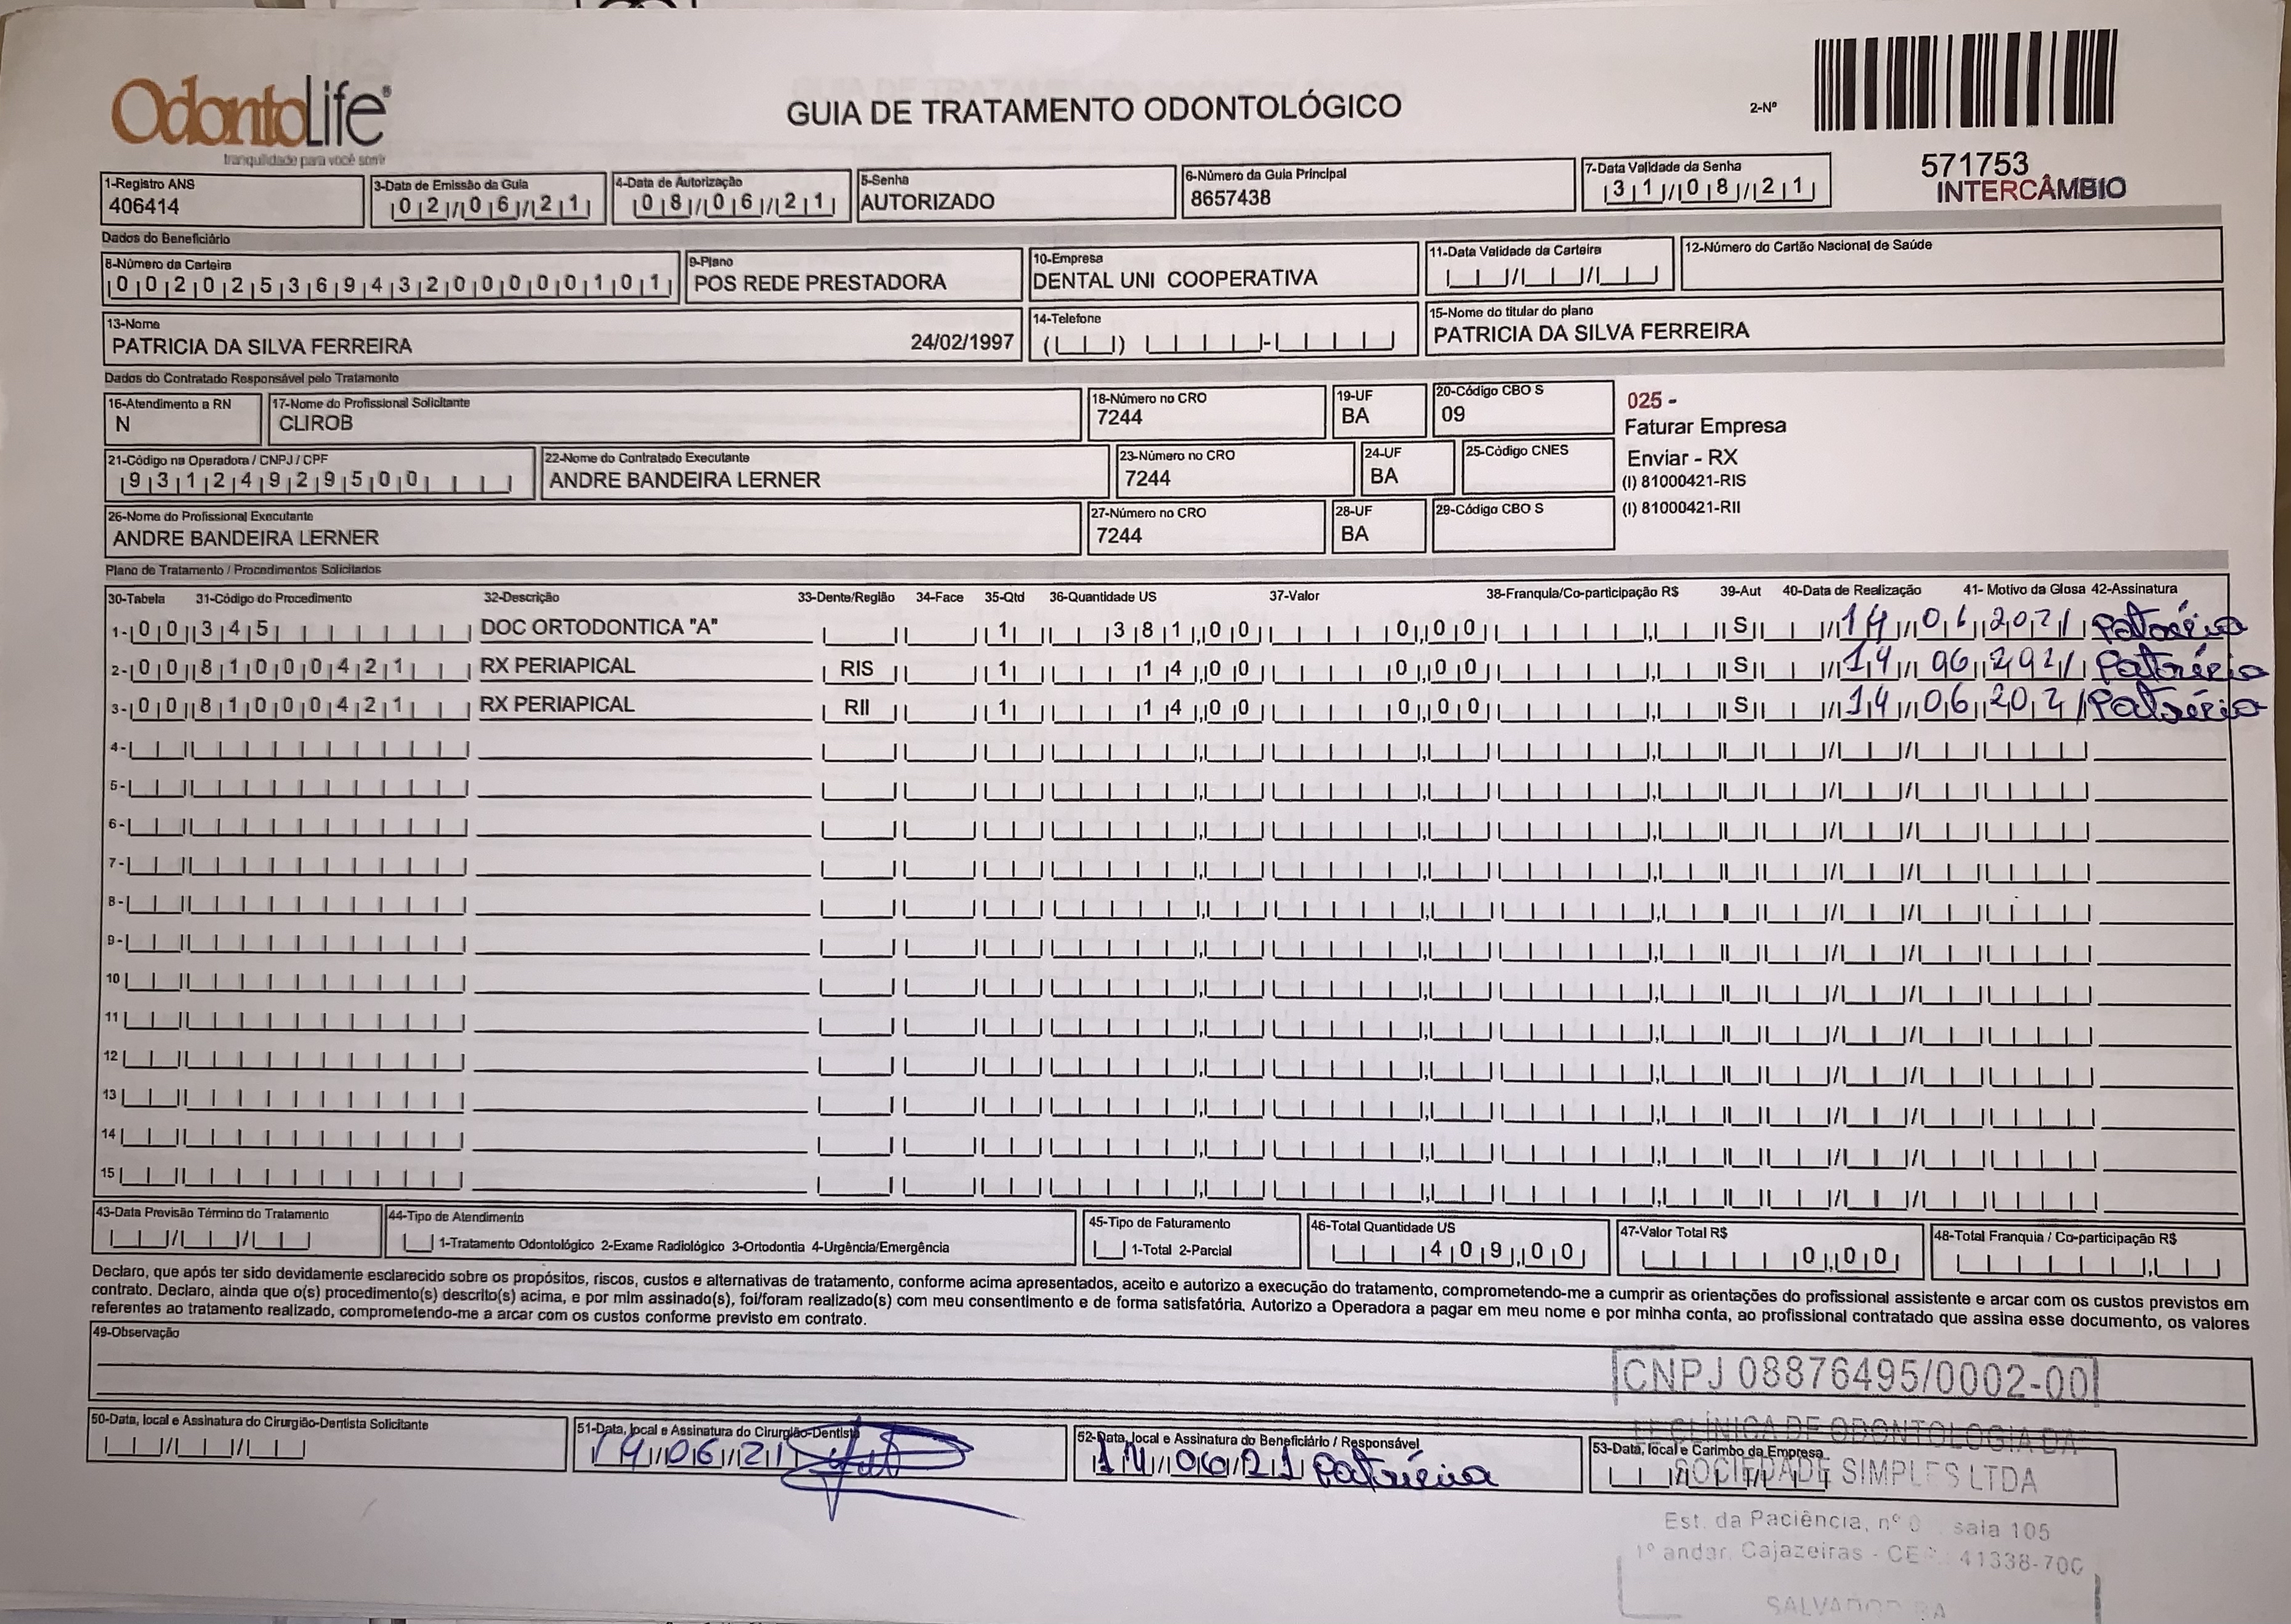 OdontoLife®
tranquilidade para você sorrir
GUIA DE TRATAMENTO ODONTOLÓGICO
2-Nº
571753
INTERCÂMBIO
1-Registro ANS
406414
3-Data de Emissão da Guia
02/06/21
4-Data de Autorização
08/06/21
5-Senha
AUTORIZADO
6-Número da Guia Principal
8657438
7-Data Validade da Senha
31/08/21
Dados do Beneficiário
8-Número da Carteira
00202536943200000101
9-Plano
POS REDE PRESTADORA
10-Empresa
DENTAL UNI COOPERATIVA
11-Data Validade da Carteira
12-Número do Cartão Nacional de Saúde
13-Nome
PATRICIA DA SILVA FERREIRA 24/02/1997
14-Telefone
15-Nome do titular do plano
PATRICIA DA SILVA FERREIRA
Dados do Contratado Responsável pelo Tratamento
16-Atendimento a RN
N
17-Nome do Profissional Solicitante
CLIROB
18-Número no CRO
7244
19-UF
BA
20-Código CBO S
09
025 -
Faturar Empresa
Enviar - RX
(I) 81000421-RIS
(I) 81000421-RII
21-Código na Operadora / CNPJ / CPF
93124929500
22-Nome do Contratado Executante
ANDRE BANDEIRA LERNER
23-Número no CRO
7244
24-UF
BA
25-Código CNES
26-Nome do Profissional Executante
ANDRE BANDEIRA LERNER
27-Número no CRO
7244
28-UF
BA
29-Código CBO S
Plano de Tratamento / Procedimentos Solicitados
30-Tabela 31-Código do Procedimento 32-Descrição 33-Dente/Região 34-Face 35-Qtd 36-Quantidade US 37-Valor 38-Franquia/Co-participação R$ 39-Aut 40-Data de Realização 41- Motivo da Glosa 42-Assinatura
1- 00 345 DOC ORTODONTICA "A" 1 381,00 0,00 S 14 06 2021 Patrícia
2- 00 81000421 RX PERIAPICAL RIS 1 14,00 0,00 S 14 06 2021 Patrícia
3- 00 81000421 RX PERIAPICAL RII 1 14,00 0,00 S 14 06 2021 Patrícia
4-
5-
6-
7-
8-
9-
10
11
12
13
14
15
43-Data Previsão Término do Tratamento
44-Tipo de Atendimento
1-Tratamento Odontológico 2-Exame Radiológico 3-Ortodontia 4-Urgência/Emergência
45-Tipo de Faturamento
1-Total 2-Parcial
46-Total Quantidade US
409,00
47-Valor Total R$
0,00
48-Total Franquia / Co-participação R$
Declaro, que após ter sido devidamente esclarecido sobre os propósitos, riscos, custos e alternativas de tratamento, conforme acima apresentados, aceito e autorizo a execução do tratamento, comprometendo-me a cumprir as orientações do profissional assistente e arcar com os custos previstos em
contrato. Declaro, ainda que o(s) procedimento(s) descrito(s) acima, e por mim assinado(s), foi/foram realizado(s) com meu consentimento e de forma satisfatória. Autorizo a Operadora a pagar em meu nome e por minha conta, ao profissional contratado que assina esse documento, os valores
referentes ao tratamento realizado, comprometendo-me a arcar com os custos conforme previsto em contrato.
49-Observação
50-Data, local e Assinatura do Cirurgião-Dentista Solicitante
51-Data, local e Assinatura do Cirurgião-Dentista
14/06/21
52-Data, local e Assinatura do Beneficiário / Responsável
14/06/21 Patrícia
53-Data, local e Carimbo da Empresa
CNPJ 08876495/0002-00
CLÍNICA DE ODONTOLOGIA DA
SOCIEDADE SIMPLES LTDA
Est. da Paciência, nº sala 105
1º andar, Cajazeiras - CEP 41338-700
SALVADOR BA